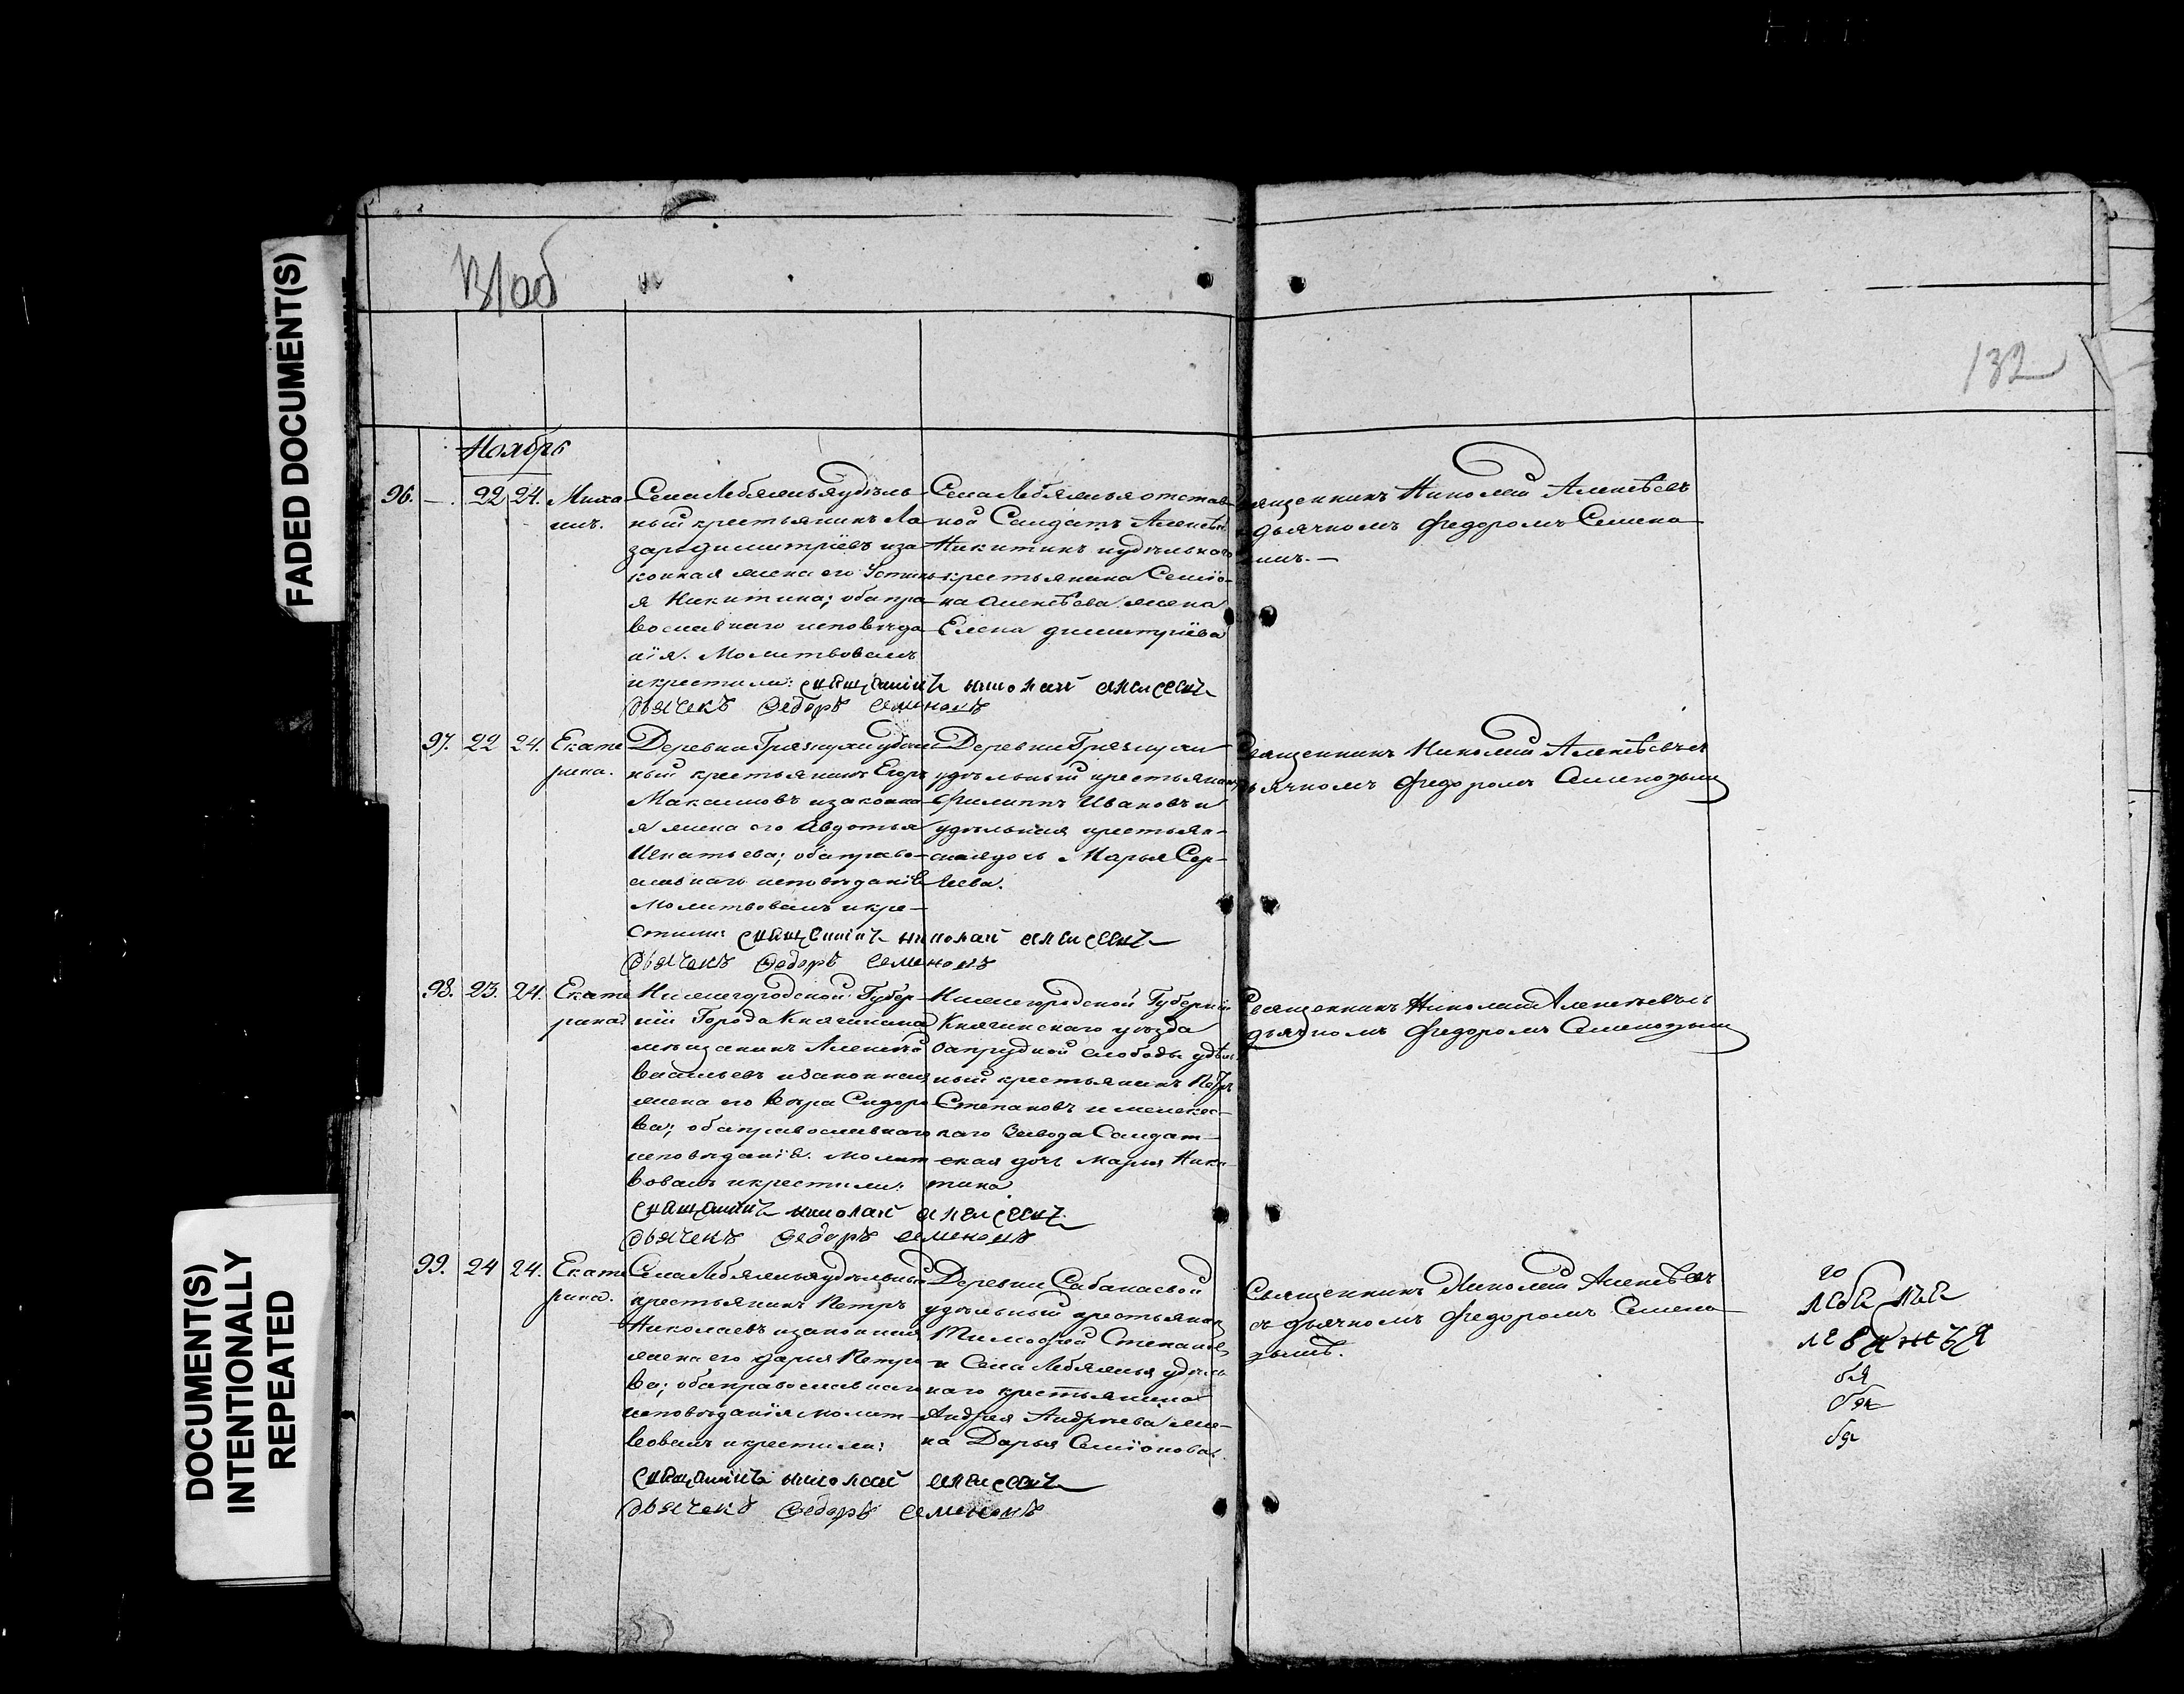 FADED DOCUMENT(S)
DOCUMENT(S)
INTENTIONALLY
REPEATED
131об
132
Ноябрь
96. — 22 24. Миха
илъ.
Села Лебяжья удѣль
ный крестьянинъ Ла
зарь Димитріевъ иза
конная жена его Устинь
я Никитина; оба пра
вославнаго исповѣда
нія. Молитвовалъ
и крестили: священникъ николай алексеевъ
дьячекъ Ѳедоръ семеновъ
Села Лебяжья отстав
ной Салдатъ Алексѣй
Никитинъ и удѣльнаго
крестьянина Семіо-
на Алексѣева жена
Елена Димитріева
Священникъ Николай Алексѣевъ
дьячкомъ Федоромъ Семено
97. 22 24. Екате
рина.
Деревни Грязнухи удѣль
ный крестьянинъ Егоръ
Максимовъ изаконна
я жена его Авдотья
Игнатьева; оба право-
славнаго исповѣданія
Молитвовалъ и кре-
стили: священникъ николай алексеевъ
дьячекъ Ѳедоръ семеновъ
Деревни Грязнухи
удѣльный крестьянинъ
Филиппъ Ивановъ и
удѣльная крестьян-
ская дочь Марья Сер-
геева.
Священникъ Николай Алексѣевъ съ
дьячкомъ Федоромъ Семеновымъ
98. 23. 24. Екате
рина.
Нижегородской Губер-
ніи Города Княгинина
мѣщанинъ Алексѣй
Васильевъ изаконная
жена его Вѣра Сидоро
ва; оба православнаго
исповѣданія. Молит
вовалъ и крестили:
священникъ николай алексеевъ
дьячекъ Ѳедоръ семеновъ
Нижегородской Губерніи
Княгинскаго уѣзда
Запрудной слободы удѣль
ный крестьянинъ Петръ
Степановъ и мелекес-
каго Завода Салдат-
ская дочь Марья Ники-
тина
Священникъ Николай Алексѣевъ съ
дьячкомъ Федоромъ Семеновымъ
99. 24 24. Екате
рина.
Села Лебяжья удѣльный
крестьянинъ Петръ
Николаевъ изаконная
жена его Дарья Петро
ва; оба православнаго
исповѣданія молит-
вовалъ и крестили:
священникъ николай алексеевъ
дьячекъ Ѳедоръ семеновъ
Деревни Сабакаевой
удѣльный крестьянинъ
Тимофей Степановъ
и Села Лебяжья удѣль
наго крестьянина
Андрея Андреева же-
на Дарья Семіонова.
Священникъ Николай Алексѣевъ
съ дьячкомъ Федоромъ Семено
вымъ.
бя
бя